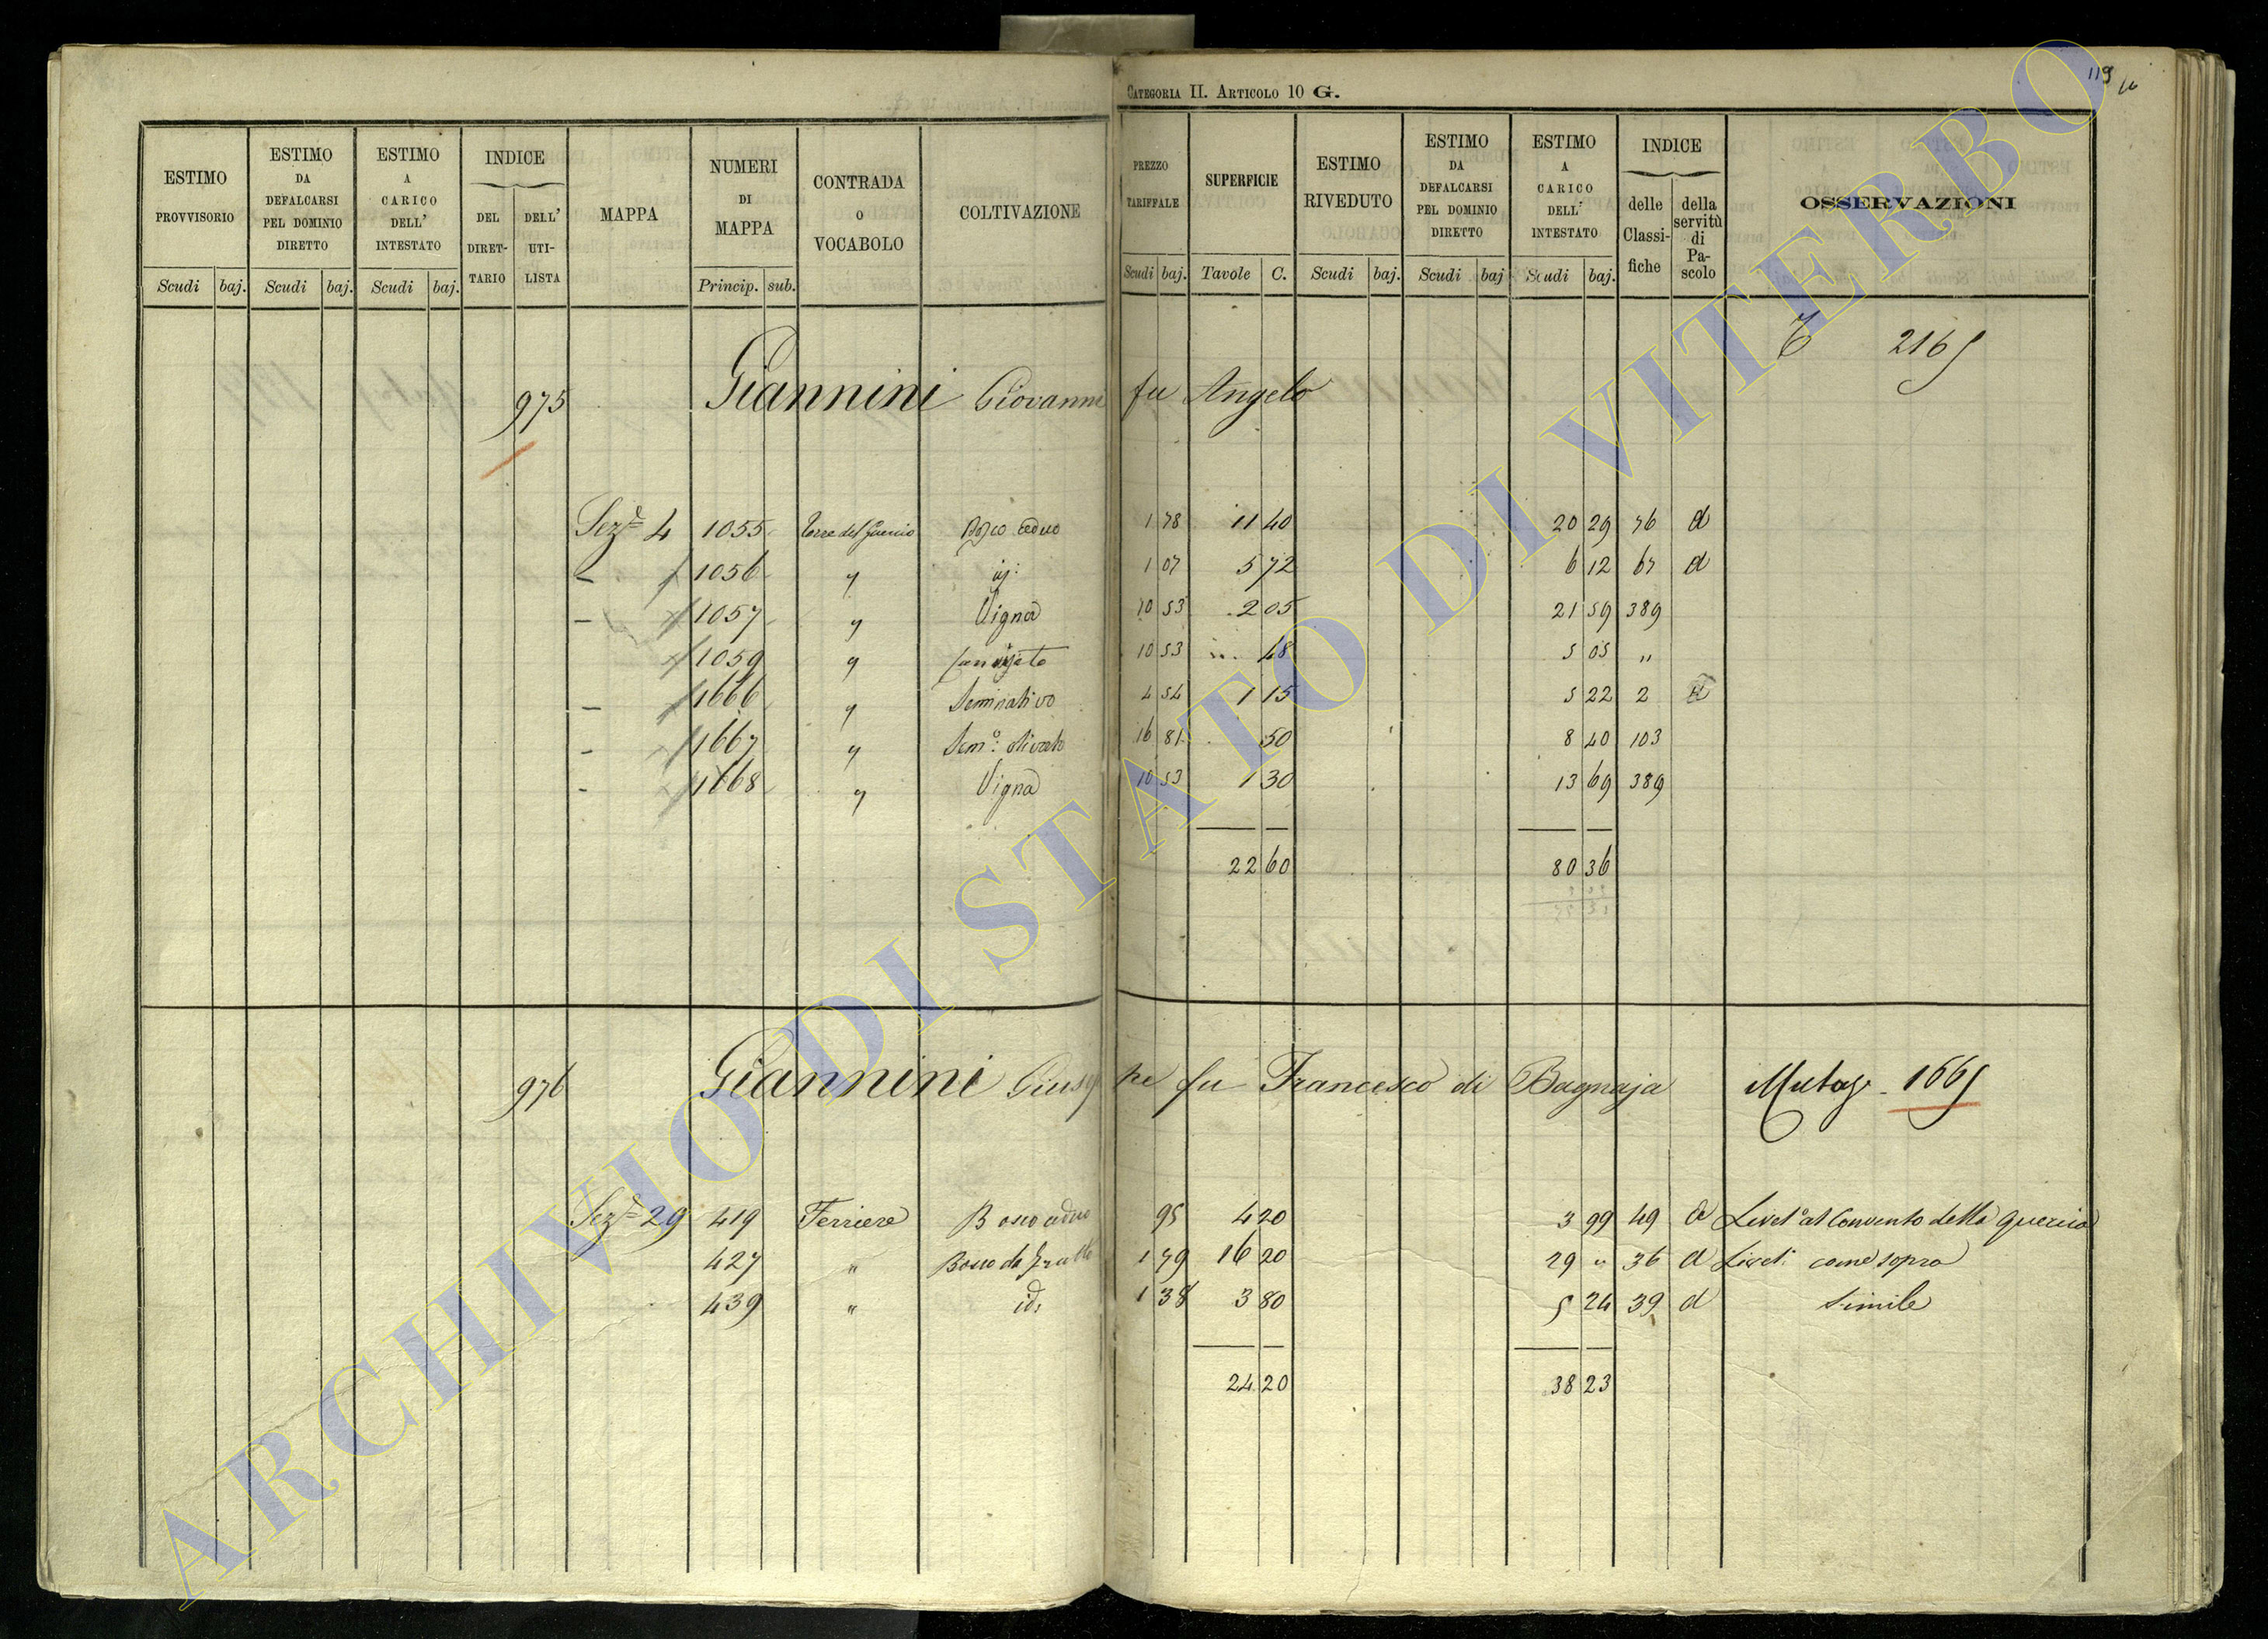 CATEGORIA II. ARTICOLO 10 G.
119
ESTIMO PROVVISORIO Scudi baj.
ESTIMO DA DEFALCARSI PEL DOMINIO DIRETTO Scudi baj.
ESTIMO A CARICO DELL' INTESTATO Scudi baj.
INDICE DEL DIRETTARIO DELL' UTILISTA
MAPPA
NUMERI DI MAPPA Princip. sub.
CONTRADA O VOCABOLO
COLTIVAZIONE
PREZZO TARIFFALE Scudi baj.
SUPERFICIE Tavole C.
ESTIMO RIVEDUTO Scudi baj.
ESTIMO DA DEFALCARSI PEL DOMINIO DIRETTO Scudi baj
ESTIMO A CARICO DELL' INTESTATO Scudi baj.
INDICE delle Classifiche della servitù di Pascolo
OSSERVAZIONI
2165
975 Giannini Giovanni fu Angelo
Sez.e 4 1055 Torre del 1 78 11 40 20 29 76 d
1056 " id: 1 07 5 72 6 12 67 d
1057 " Vigna 10 53 2 05 21 59 389
1059 " 10 53 48 5 05 "
1666 " Seminativo 4 54 1 15 5 22 2
1667 " Sem.o olivato 16 81 50 8 40 103
1668 " Vigna 10 53 1 30 13 69 389
22 60 80 36
976 Giannini Giuseppe fu Francesco di Bagnaja Mutaz. 1665
Sez.e 29 419 Ferriere Bosco ceduo 95 4 20 3 99 49 d Livel.o al Convento della Quercia
427 " Bosco da frutto 1 79 16 20 29 " 36 d Livel: come sopra
439 " id: 1 38 3 80 5 24 39 d Simile
24 20 38 23
ARCHIVIO DI STATO DI VITERBO